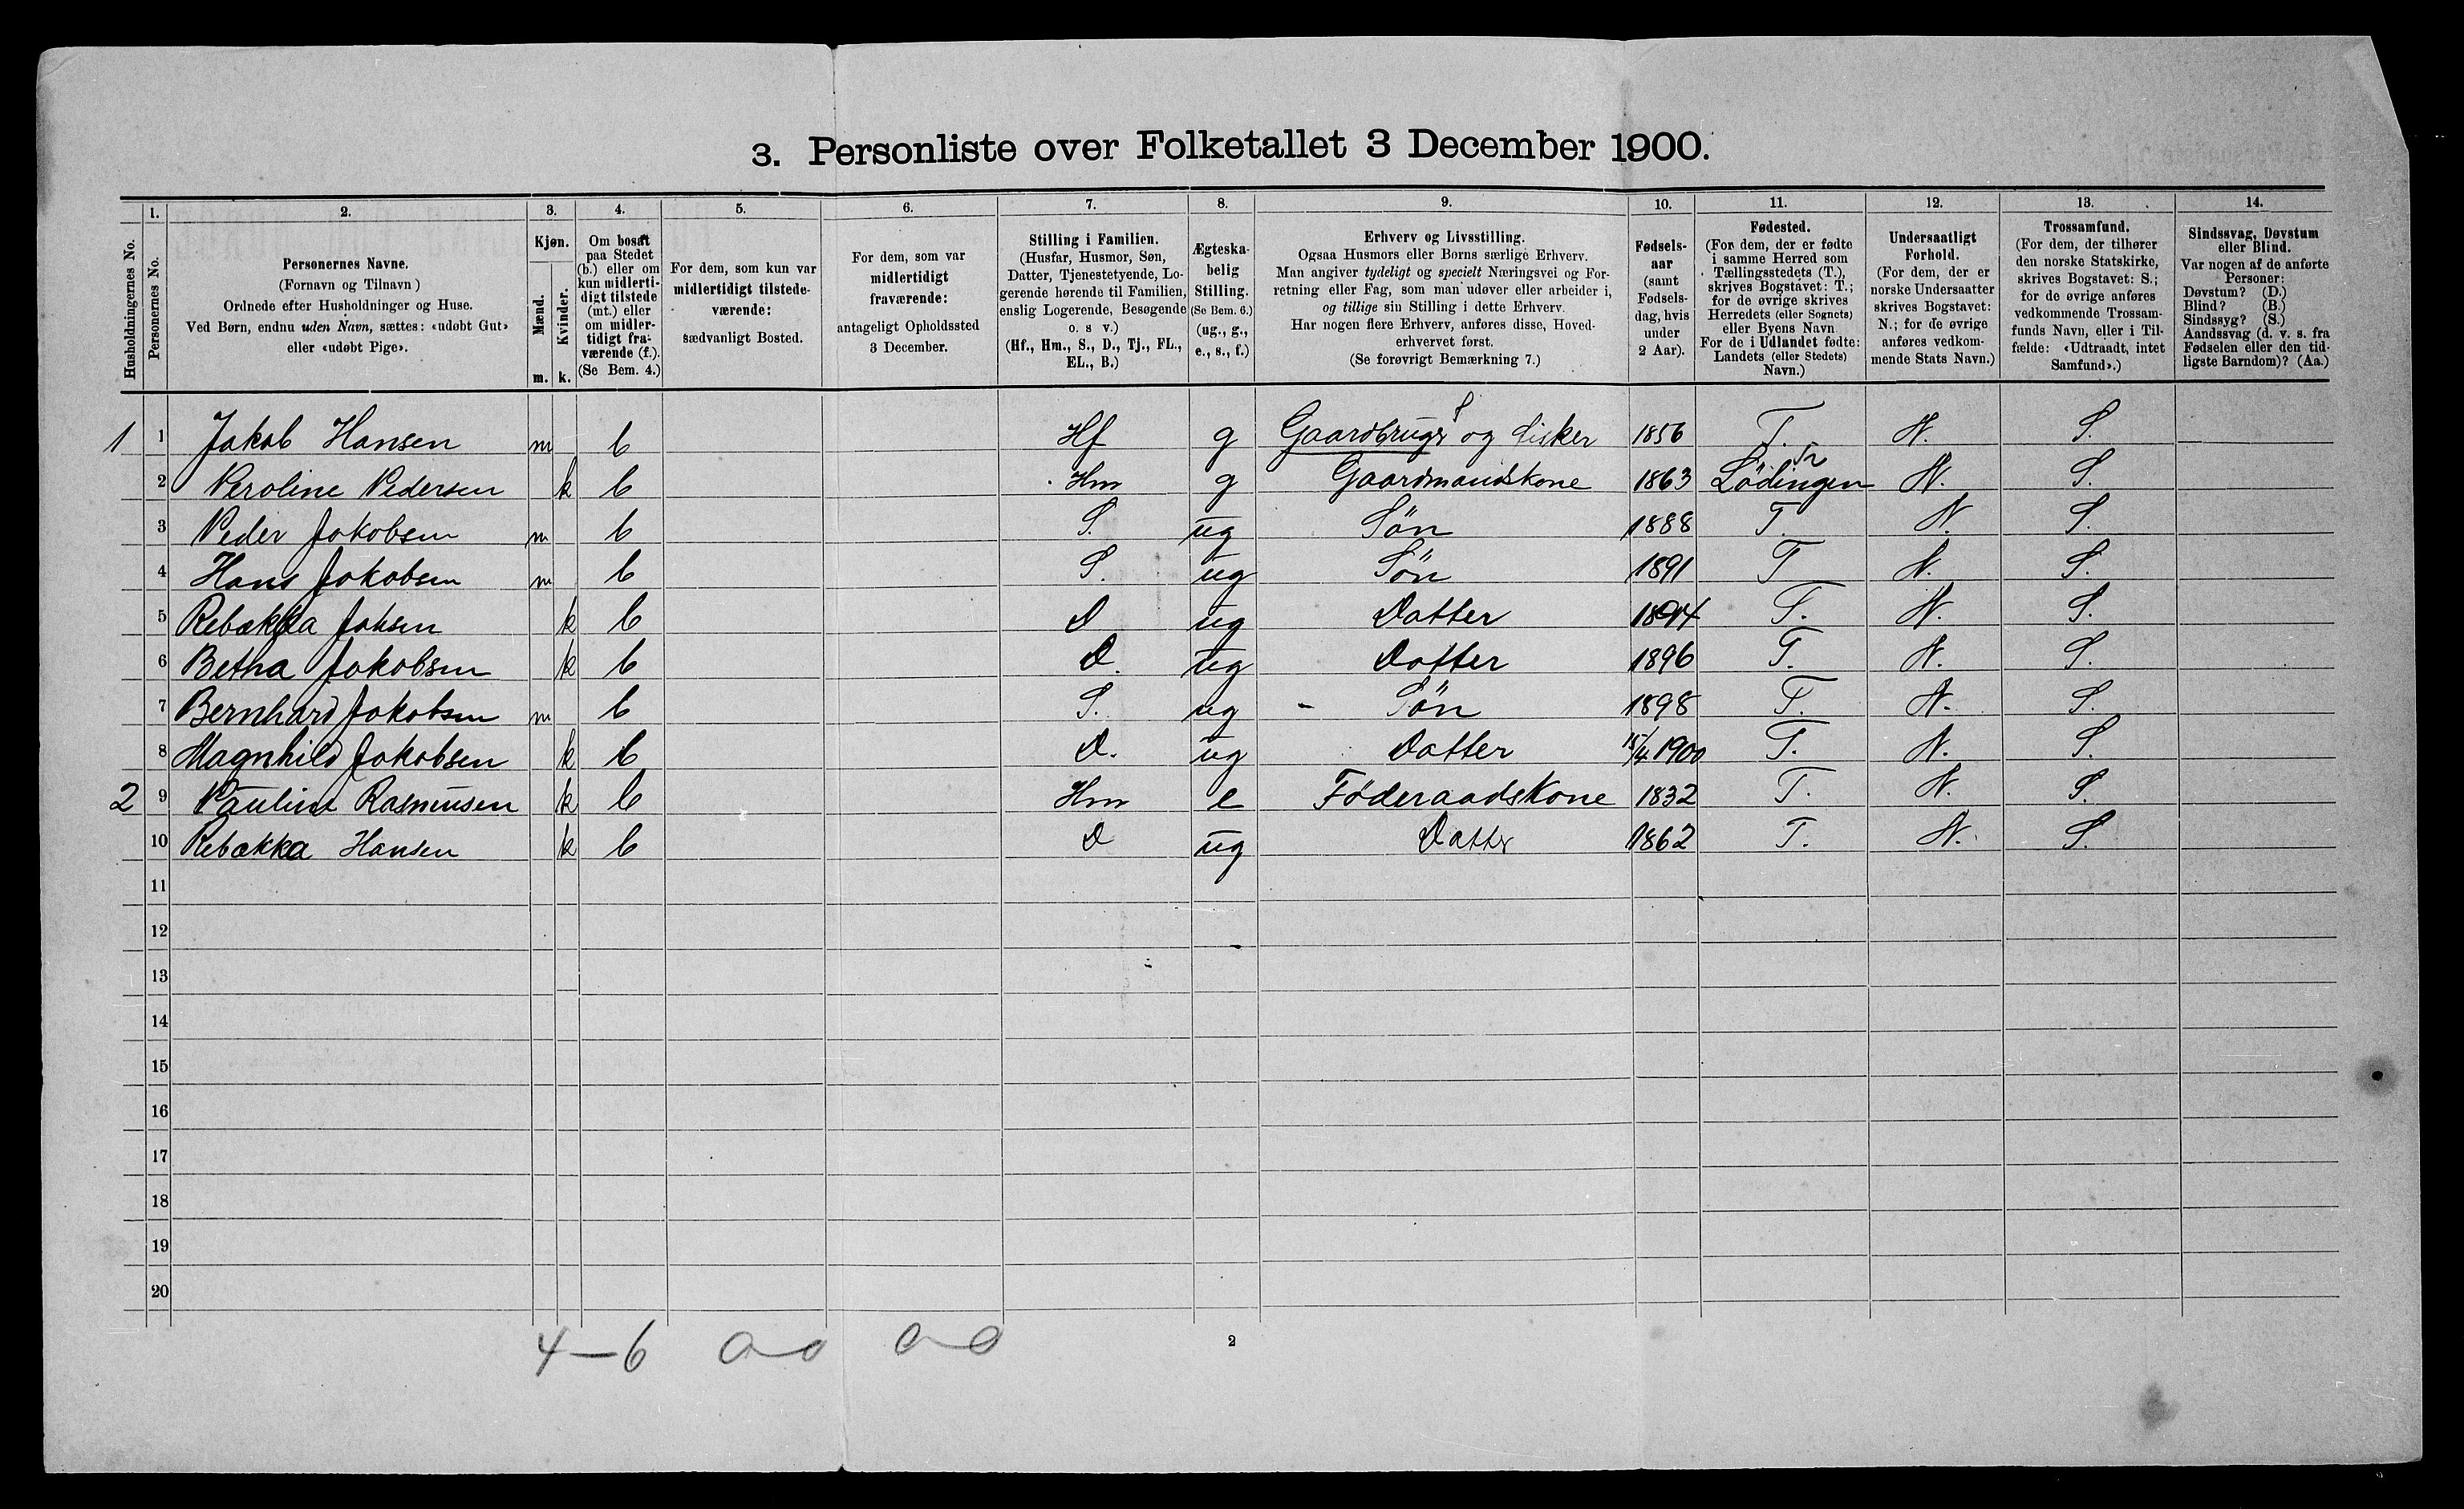 3. Personliste over Folketallet 3 December 1900.
Husholdningernes No.
1.
Personernes No.
2.
Personernes Navne.
(Fornavn og Tilnavn)
Ordnede efter Husholdninger og Huse.
Ved Børn, endnu uden Navn, sættes: «udøbt Gut»
eller «udøbt Pige».
3.
Kjøn.
Mænd.
Kvinder.
m. k.
4.
Om bosat
paa Stedet
(b.) eller om
kun midlerti-
digt tilstede
(mt.) eller
om midler-
tidigt fra-
værende (f.).
(Se Bem. 4.)
5.
For dem, som kun var
midlertidigt tilstede-
værende:
sædvanligt Bosted.
6.
For dem, som var
midlertidigt
fraværende:
antageligt Opholdssted
3 December.
7.
Stilling i Familien.
(Husfar, Husmor, Søn,
Datter, Tjenestetyende, Lo-
gerende hørende til Familien,
enslig Logerende, Besøgende
o. s v.)
(Hf., Hm., S., D., Tj., FL.,
EL., B.)
8.
Ægteska-
belig
Stilling.
(Se Bem. 6.)
(ug., g.,
e., s., f.)
9.
Erhverv og Livsstilling.
Ogsaa Husmors eller Børns særlige Erhverv.
Man angiver tydeligt og specielt Næringsvei og For-
retning eller Fag, som man udøver eller arbeider i,
og tillige sin Stilling i dette Erhverv.
Har nogen flere Erhverv, anføres disse, Hoved-
erhvervet først.
(Se forøvrigt Bemærkning 7.)
10.
Fødsels-
aar
(samt
Fødsels-
dag, hvis
under
2 Aar).
11.
Fødested.
(For dem, der er fødte
i samme Herred som
Tællingsstedets (T.),
skrives Bogstavet: T.;
for de øvrige skrives
Herredets (eller Sognets)
eller Byens Navn
For de i Udlandet fødte:
Landets (eller Stedets)
Navn.)
12.
Undersaatligt
Forhold.
(For dem, der er
norske Undersaatter
skrives Bogstavet:
N.; for de øvrige
anføres vedkom-
mende Stats Navn.)
13.
Trossamfund.
(For dem, der tilhører
den norske Statskirke,
skrives Bogstavet: S.;
for de øvrige anføres
vedkommende Trossam-
funds Navn, eller i Til-
fælde: «Udtraadt, intet
Samfund».)
14.
Sindssvag, Døvstum
eller Blind.
Var nogen af de anførte
Personer:
Døvstum? (D.)
Blind? (B.)
Sindssyg? (S.)
Aandssvag (d. v. s. fra
Fødselen eller den tid-
ligste Barndom)? (Aa.)
1 1 Jakob Hansen m b Hf g Gaardbruger og fisker 1856 T. N. S.
2 Peroline Pedersen k b Hm g Gaardmandskone 1863 Lödingen N. S.
3 Peder Jakobsen m b S. ug Sön 1888 T. N. S.
4 Hans Jakobsen m b S. ug Sön 1891 T N. S.
5 Rebækka Jobsen k b D ug Datter 1894 T. N. S.
6 Betna Jakobsen k b D. ug Datter 1896 T. N. S.
7 Bernhard Jakobsen m b S. ug - Sön 1898 T. N. S.
8 Magnhild Jakobsen k b D. ug Datter 15/4 1900 T. N. S.
2 9 Pauline Rasmusen k b Hm e Föderaadskone 1832 T. N. S.
10 Rebækka Hansen k b D ug Datter 1862 T. N. S.
11
12
13
14
15
16
17
18
19
20
4-6 0-0 0-0 2